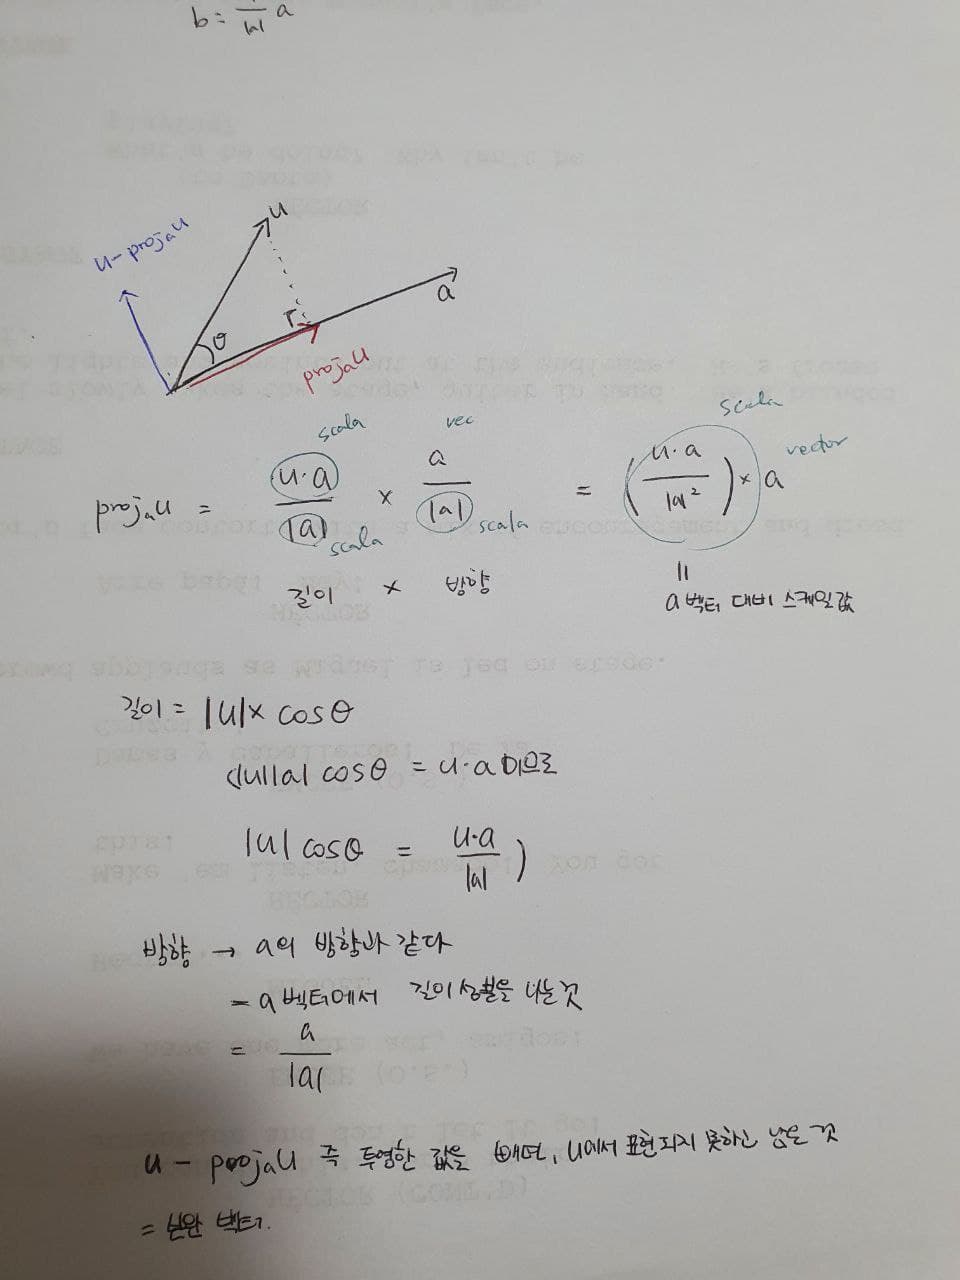 b = 1/|a| a
u
u - projₐu
a
θ
projₐu
scala vec scala
projₐu = u·a/|a| × a/|a| = (u·a/|a|²) × a vector
scala scala
길이 × 방향
||
a 벡터 대비 스케일 값
길이 = |u| × cosθ
(|u||a| cosθ = u·a 이므로
|u| cosθ = u·a/|a| )
방향 → a의 방향과 같다
= a 벡터에서 길이 성분을 나눈 것
= a/|a|
u - projₐu 즉 투영한 값을 빼면, u에서 표현되지 못하고 남은 것
= 보완 벡터.